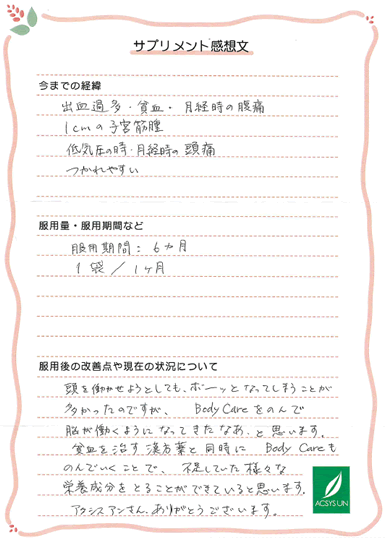 サプリメント感想文
今までの経緯
出血過多・貧血・月経時の腹痛
1cmの子宮筋腫
低気圧の時・月経時の頭痛
つかれやすい
服用量・服用期間など
服用期間：6ヵ月
1袋／1ヶ月
服用後の改善点や現在の状況について
頭を働かせようとしても、ボーッとなってしまうことが
多かったのですが、 Body Careをのんで
脳が働くようになってきたなあ、と思います。
貧血を治す漢方薬と同時に Body Careも
のんでいくことで、不足していた様々な
栄養成分をとることができていると思います。
アクシスアンさん、ありがとうございます。
ACSYS UN